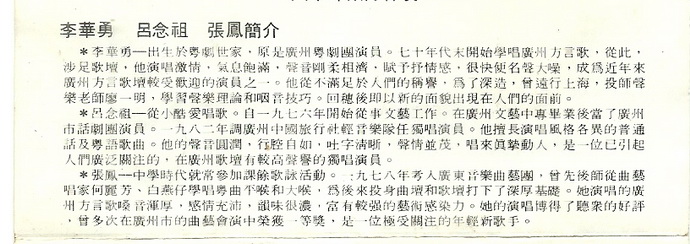 李華勇　呂念祖　張鳳簡介
＊李華勇—出生於粵劇世家，原是廣州粵劇團演員。七十年代末開始學唱廣州方言歌，從此，
涉足歌壇，他演唱激情，氣息飽滿，聲音剛柔相濟，賦予抒情感，很快便名聲大噪，成爲近年來
廣州方言歌壇較受歡迎的演員之一。他從不滿足於人們的稱譽，爲了深造，曾遠行上海，投師聲
樂老師廖一明，學習聲樂理論和咽音技巧。回穗後即以新的面貌出現在人們的面前。
＊呂念祖—從小酷愛唱歌。自一九七六年開始從事文藝工作。在廣州文藝中專畢業後當了廣州
市話劇團演員。一九八二年調廣州中國旅行社輕音樂隊任獨唱演員。他擅長演唱風格各異的普通
話及粵語歌曲。他的聲音圓潤，行腔自如，吐字清晰，聲情並茂，唱來眞摯動人，是一位已引起
人們廣泛關注的，在廣州歌壇有較高聲譽的獨唱演員。
＊張鳳—中學時代就常參加課餘歌詠活動。一九七八年考入廣東音樂曲藝團，曾先後師從曲藝
唱家何麗芳、白燕仔學唱粵曲平喉和大喉，爲後來投身曲壇和歌壇打下了深厚基礎。她演唱的廣
州方言歌嗓音渾厚，感情充沛，韻味很濃，富有較强的藝術感染力。她的演唱博得了聽衆的好評
，曾多次在廣州市的曲藝會演中榮獲一等獎，是一位極受關注的年輕新歌手。